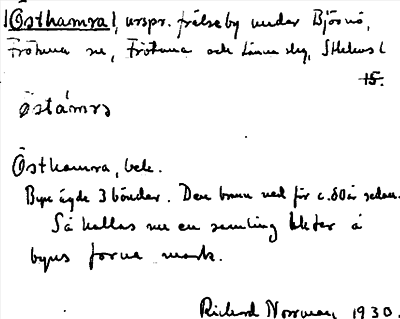 Östhamra, urspr. frälseby under Björnö,
Frötuna sn, Frötuna och Länna skg, Sthlms l
15.
Östámra
Östhamra, bek.
Byn ägde 3 bönder. Den brann ned för c. 80 år sedan.
Så kallas nu en samling tekter å
byns forna mark.
Rickard Norrman 1930.